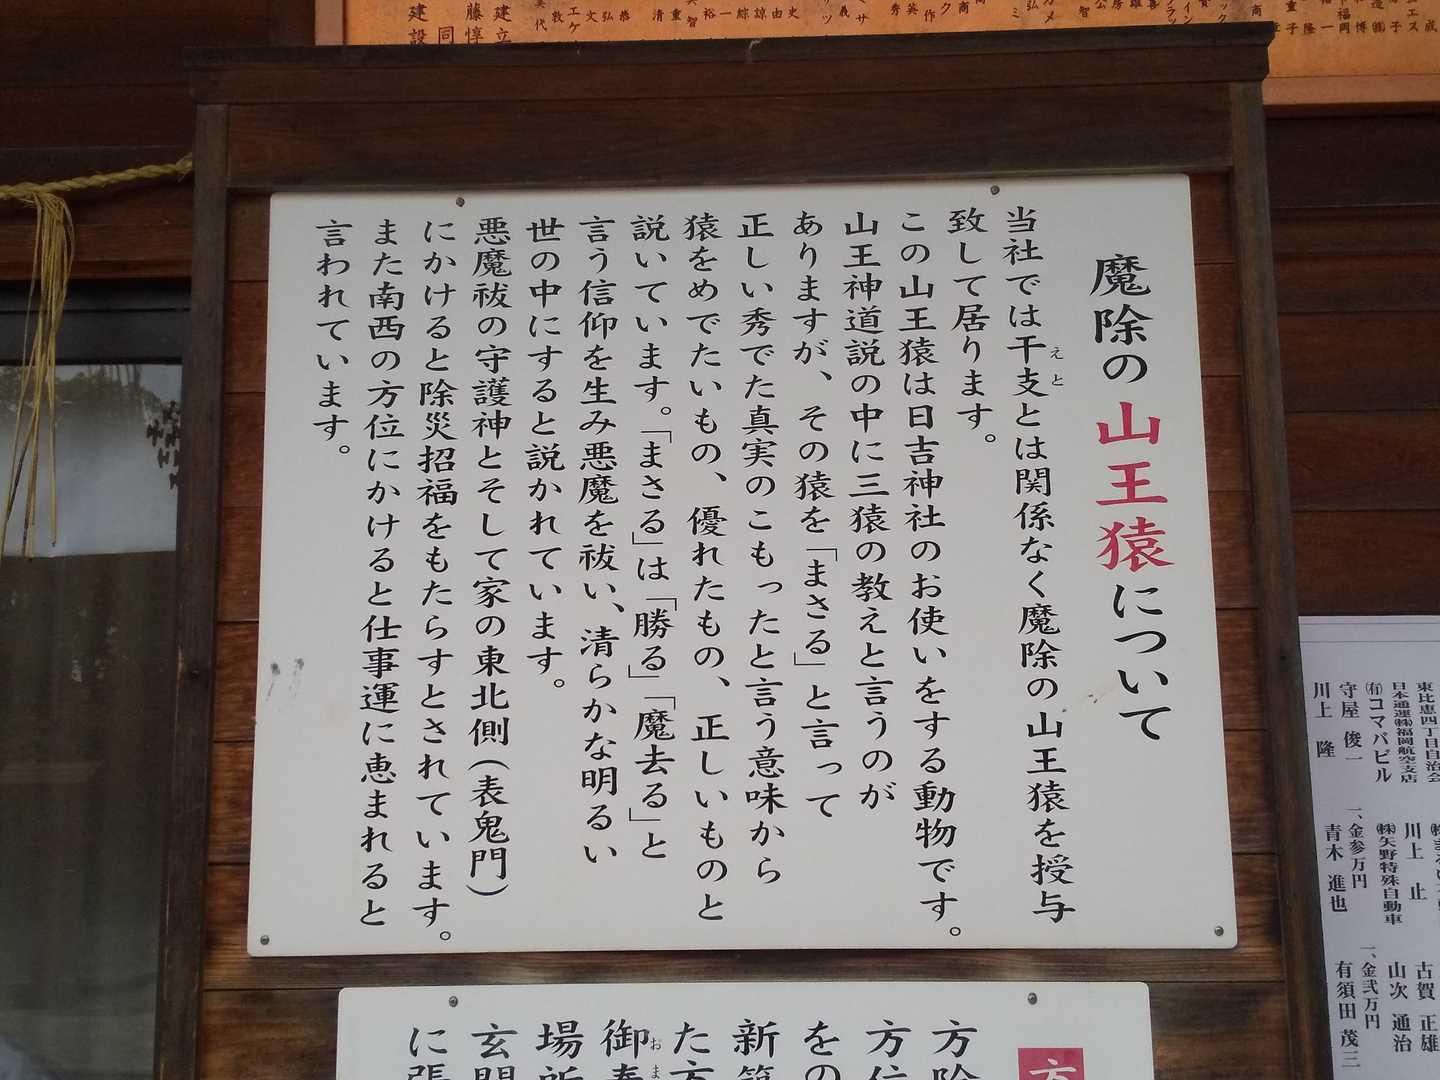 魔除の山王猿について
当社では干支とは関係なく魔除の山王猿を授与
えと
致して居ります。
この山王猿は日吉神社のお使いをする動物です。
山王神道説の中に三猿の教えと言うのが
ありますが、その猿を「まさる」と言って
正しい秀でた真実のこもったと言う意味から
猿をめでたいもの、優れたもの、正しいものと
説いています。「まさる」は「勝る」「魔去る」と
言う信仰を生み悪魔を祓い、清らかな明るい
世の中にすると説かれています。
悪魔祓の守護神とそして家の東北側(表鬼門)
にかけると除災招福をもたらすとされています。
また南西の方位にかけると仕事運に恵まれると
言われています。
方除
方位
をの
新築
た方
御
場所
玄関
に張
東比恵四丁目自治会
日本通運㈱福岡航空支店
㈲コマバビル
守屋 俊一
川上 隆
川上 止
㈱矢野特殊自動車
一、金参万円
青木 進也
古賀 正雄
山次 通治
一、金弐万円
有須田 茂三